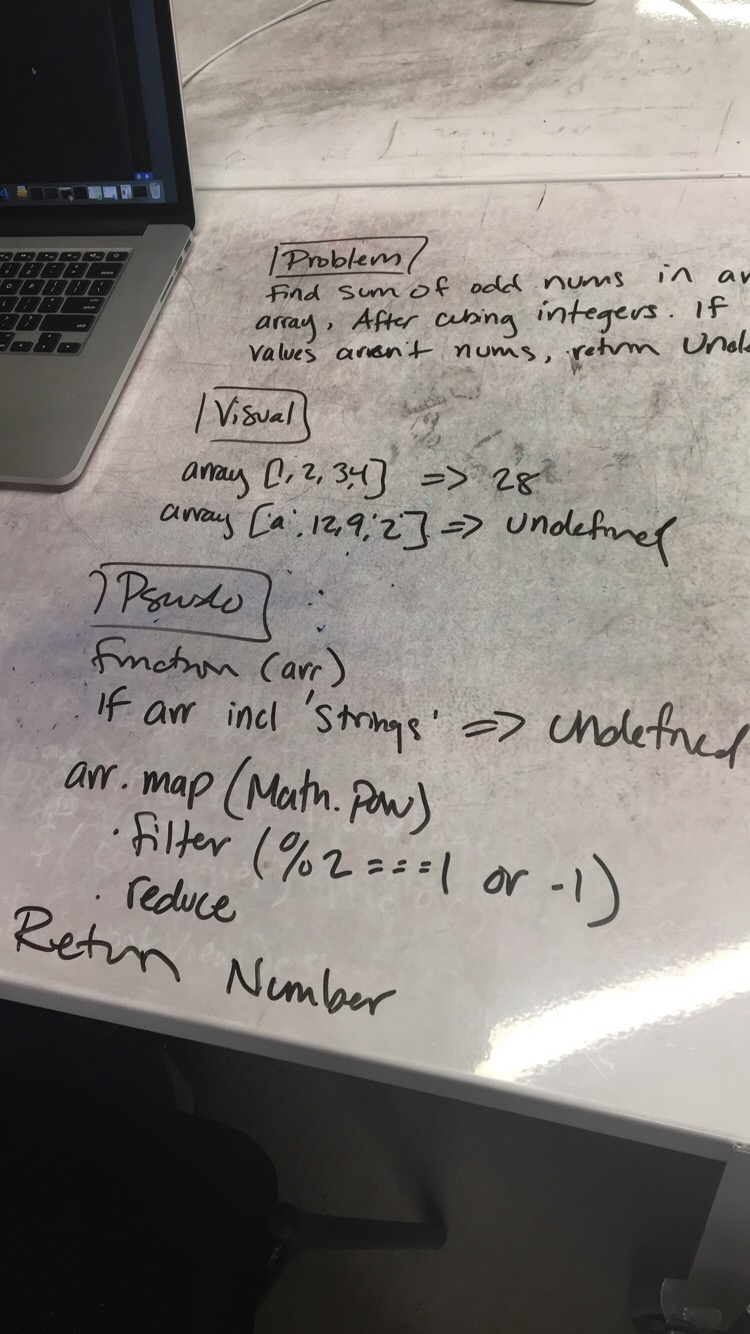 Problem
find sum of odd nums in an
array, After cubing integers. If
values aren't nums, return Unde
Visual
array [1, 2, 3,4] => 28
array ['a', 12, 9, 'z'] => undefined
Psudo
function (arr)
If arr incl 'strings' => undefined
arr.map (Math.pow)
.filter (%2===1 or -1)
.reduce
Return Number